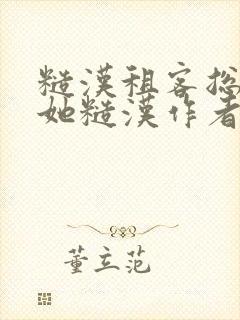 糙漢租客總
她糙漢作者
董立范